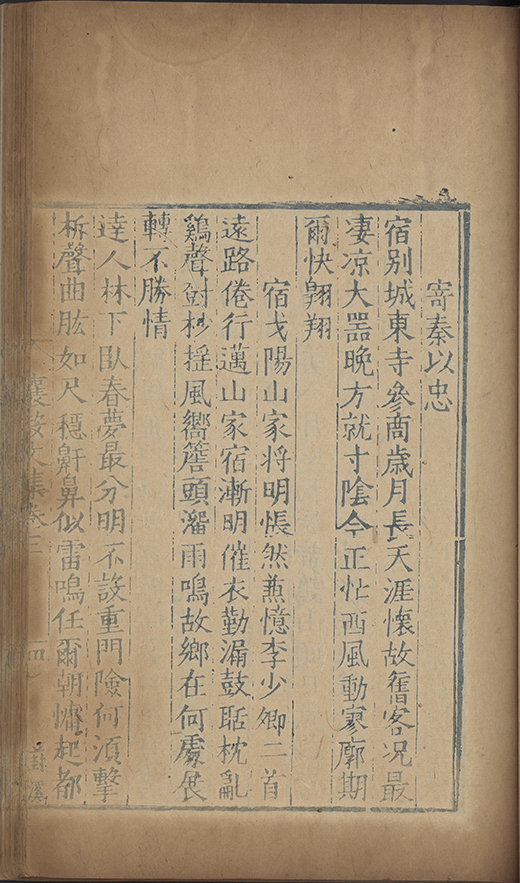 寄秦以忠
宿别城東寺參商歲月長天涯懷故舊客况最
凄凉大器晚方就寸陰今正忙西風動寥廓期
爾快翺翔
宿戈陽山家將明悵然兼憶李少卿二首
遠路倦行邁山家宿漸明催衣勤漏鼓聒枕亂
鷄聲樹杪摧風嚮簷頭溜雨鳴故鄉在何處展
轉不勝情
達人林下臥春夢最分明不設重門險何湏擊
柝聲曲肱如尺穩鼾鼻似雷鳴任爾朝慵起都
文集卷三
四
封溪